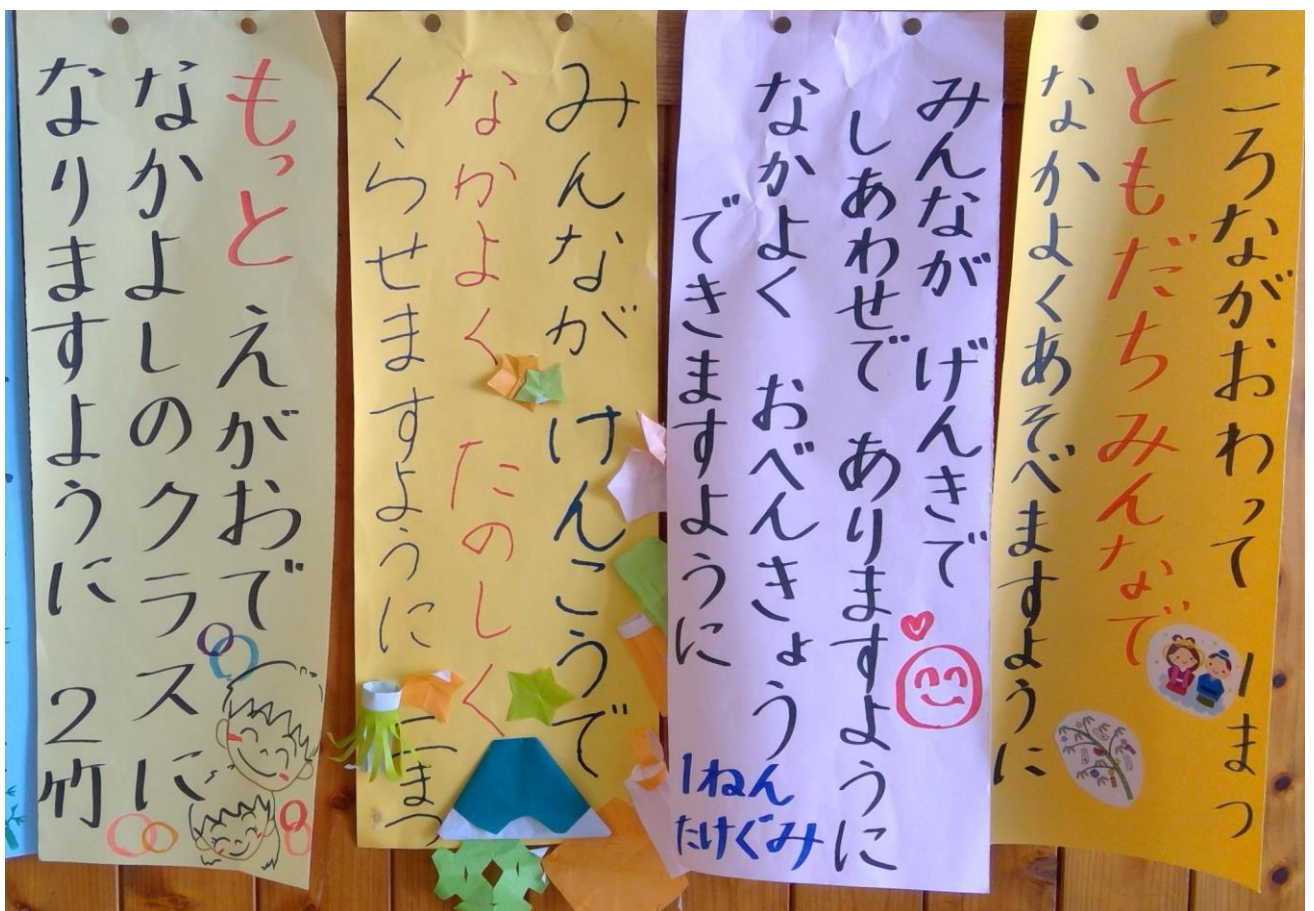 ころながおわって 1まつ
ともだちみんなで
なかよくあそべますように
みんなが げんきで
しあわせで ありますように
なかよく おべんきょう
できますように
1ねん
たけぐみ
みんなが けんこうで
なかよく たのしく
くらせますように 二まつ
もっと えがおで
なかよしのクラスに
なりますように 2竹